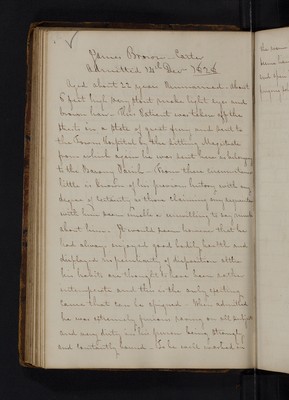 James Brown - Carter
Admitted 14th Dec 1826
Aged about 22 years Unmarried - about
6 feet high very stout made light eyes and
brown hair. This Patient was taken off the
Streets in a State of great frenzy and sent to
the Town Hospital by the sitting Magistrate
from which again he was sent here as belonging
to the Barony Parish - From these circumstances
little is known of his previous history with any
degree of certainty, as those claiming any acquaintance
with him seem unable or unwilling to say much
about him. It would seem however that he
had always enjoyed good bodily health and
displayed no peculiarity of disposition altho
his habits are thought to have been rather
intemperate and this is the only exciting
cause that can be assigned. When admitted
he was extremely furious raving on all subjects
and very dirty in his person being strongly
and constantly bound - To be